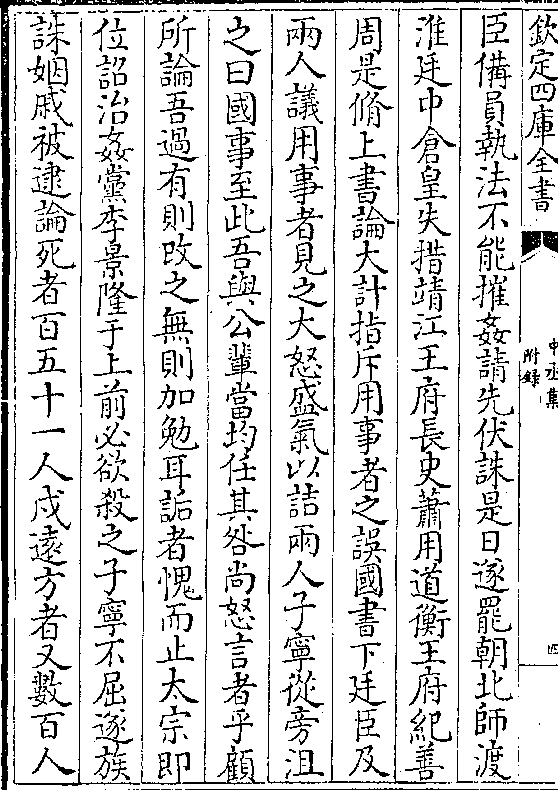 欽定四庫全書
中丞集
附錄
四
臣備員執法不能摧姦請先伏誅是日遂罷朝北師渡
淮廷中倉皇失措靖江王府長史蕭用道衡王府紀善
周是脩上書論大計指斥用事者之誤國書下廷臣及
兩人議用事者見之大怒盛氣以詰兩人子寧從旁沮
之曰國事至此吾與公輩當均任其咎尚怒言者乎顧
所論吾過有則改之無則加勉耳詬者愧而止太宗即
位詔治姦黨李景隆于上前必欲殺之子寧不屈遂族
誅姻戚被逮論死者百五十一人戍遠方者又數百人